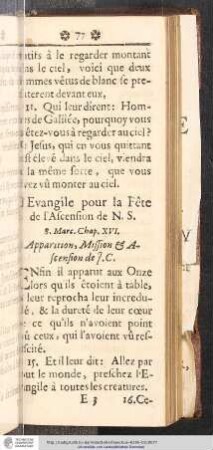 77
ntifs à le regarder montant
ns le ciel, voici que deux
mmes vêtus de blanc se pre-
terent devant eux,
11. Qui leur dirent: Hom-
s de Galilée, pourquoy vous
êtez-vous à regarder au ciel?
Jesus, qui en vous quittant
st élevé dans le ciel, viendra
la même sorte, que vous
vez vû monter au ciel.
Evangile pour la Fête
de l'Ascension de N. S.
S. Marc. Chap. XVI.
Apparition, Mission & A-
scension de J. C.
ENfin il apparut aux Onze
lors qu'ils étoient à table,
leur reprocha leur incredu-
é, & la dureté de leur cœur
ce qu'ils n'avoient point
û ceux, qui l'avoient vû res-
scité.
15. Et il leur dit: Allez par
ut le monde, preschez l'E-
ngile à toutes les creatures.
E 3 16. Ce-